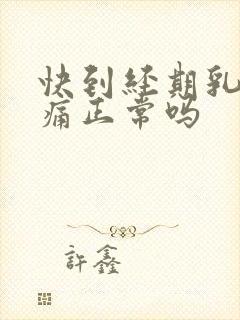 快到经期乳
痛正常吗
許鑫